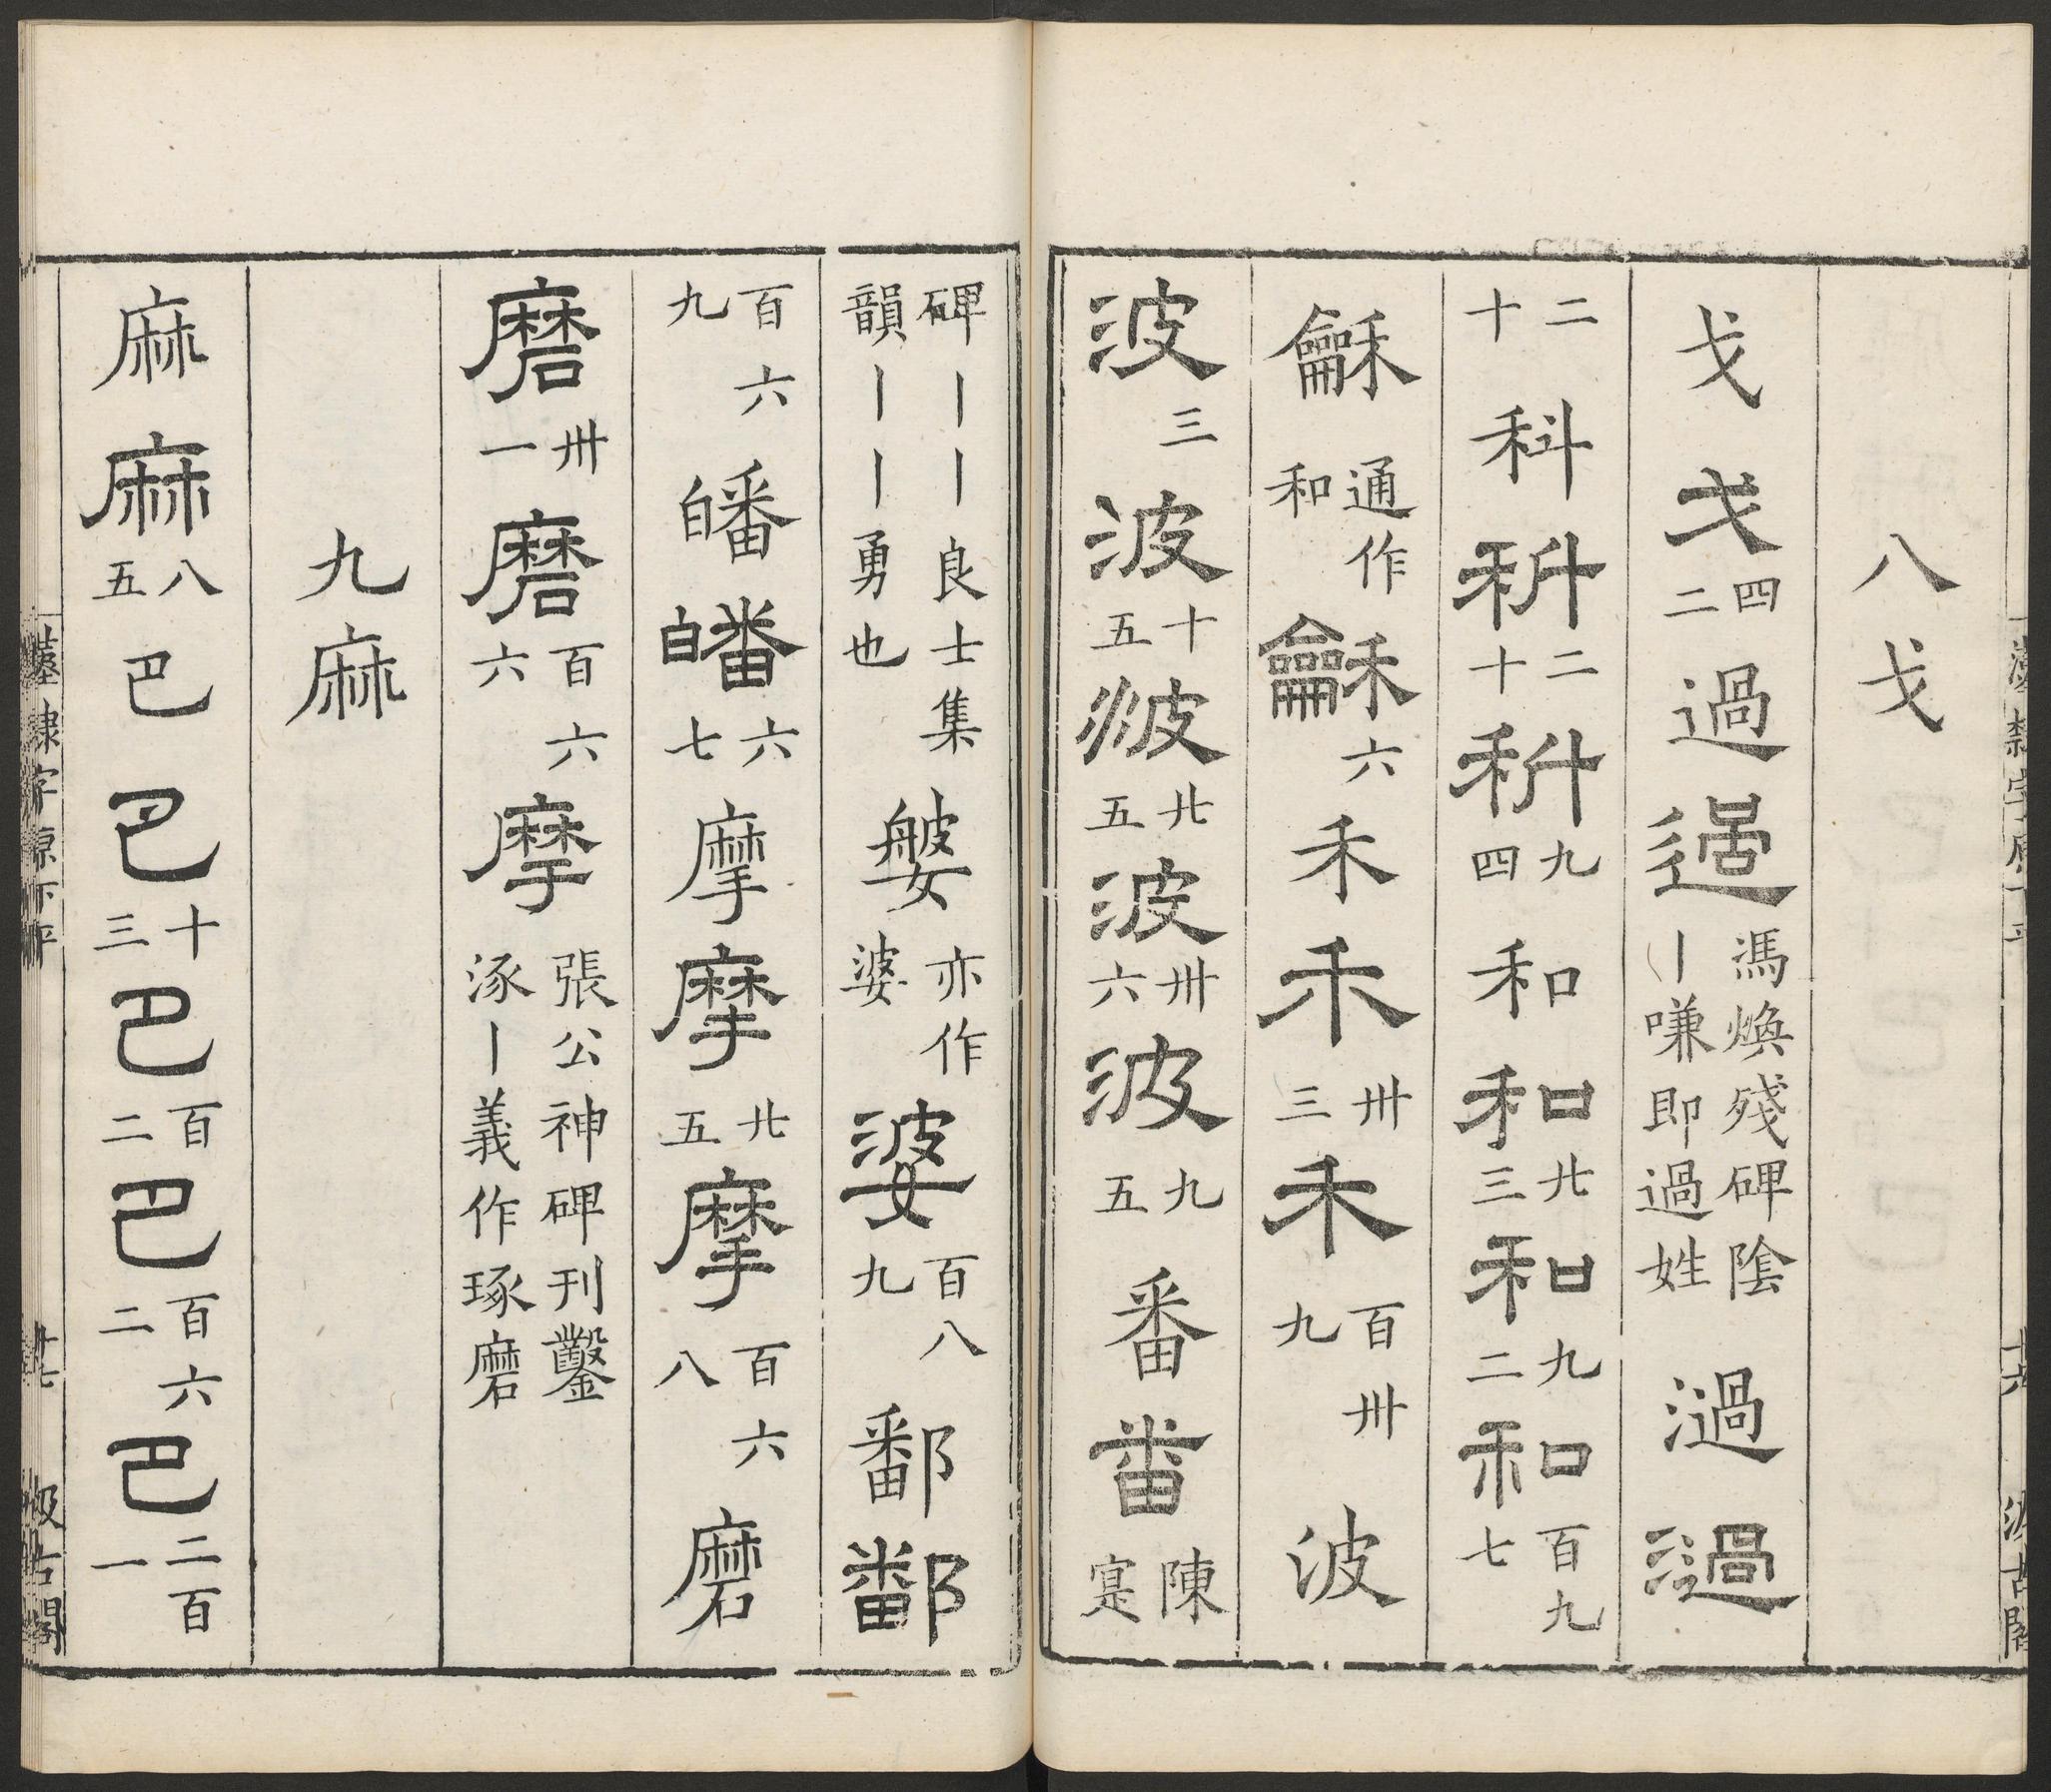 八戈
戈戈四二過過馮煥殘碑陰丨嗛即過姓濄濄
二十科科二十科九四和和廿三和九二和百九七
龢通作和龢六禾禾卅三禾百卅九波
波三波十五波廿五波卅六波九五番番陳寔
碑丨丨良士集韻丨丨勇也媻亦作婆婆百八九鄱鄱
百六九皤皤六七摩摩廿五摩百六八磨
磨卅一磨百六六摩張公神碑刊鑿涿丨義作琢磨
九麻
麻麻八五巴巴十三巴百二巴百六二巴二百一
漢隸字原下平 十七 汲古閣